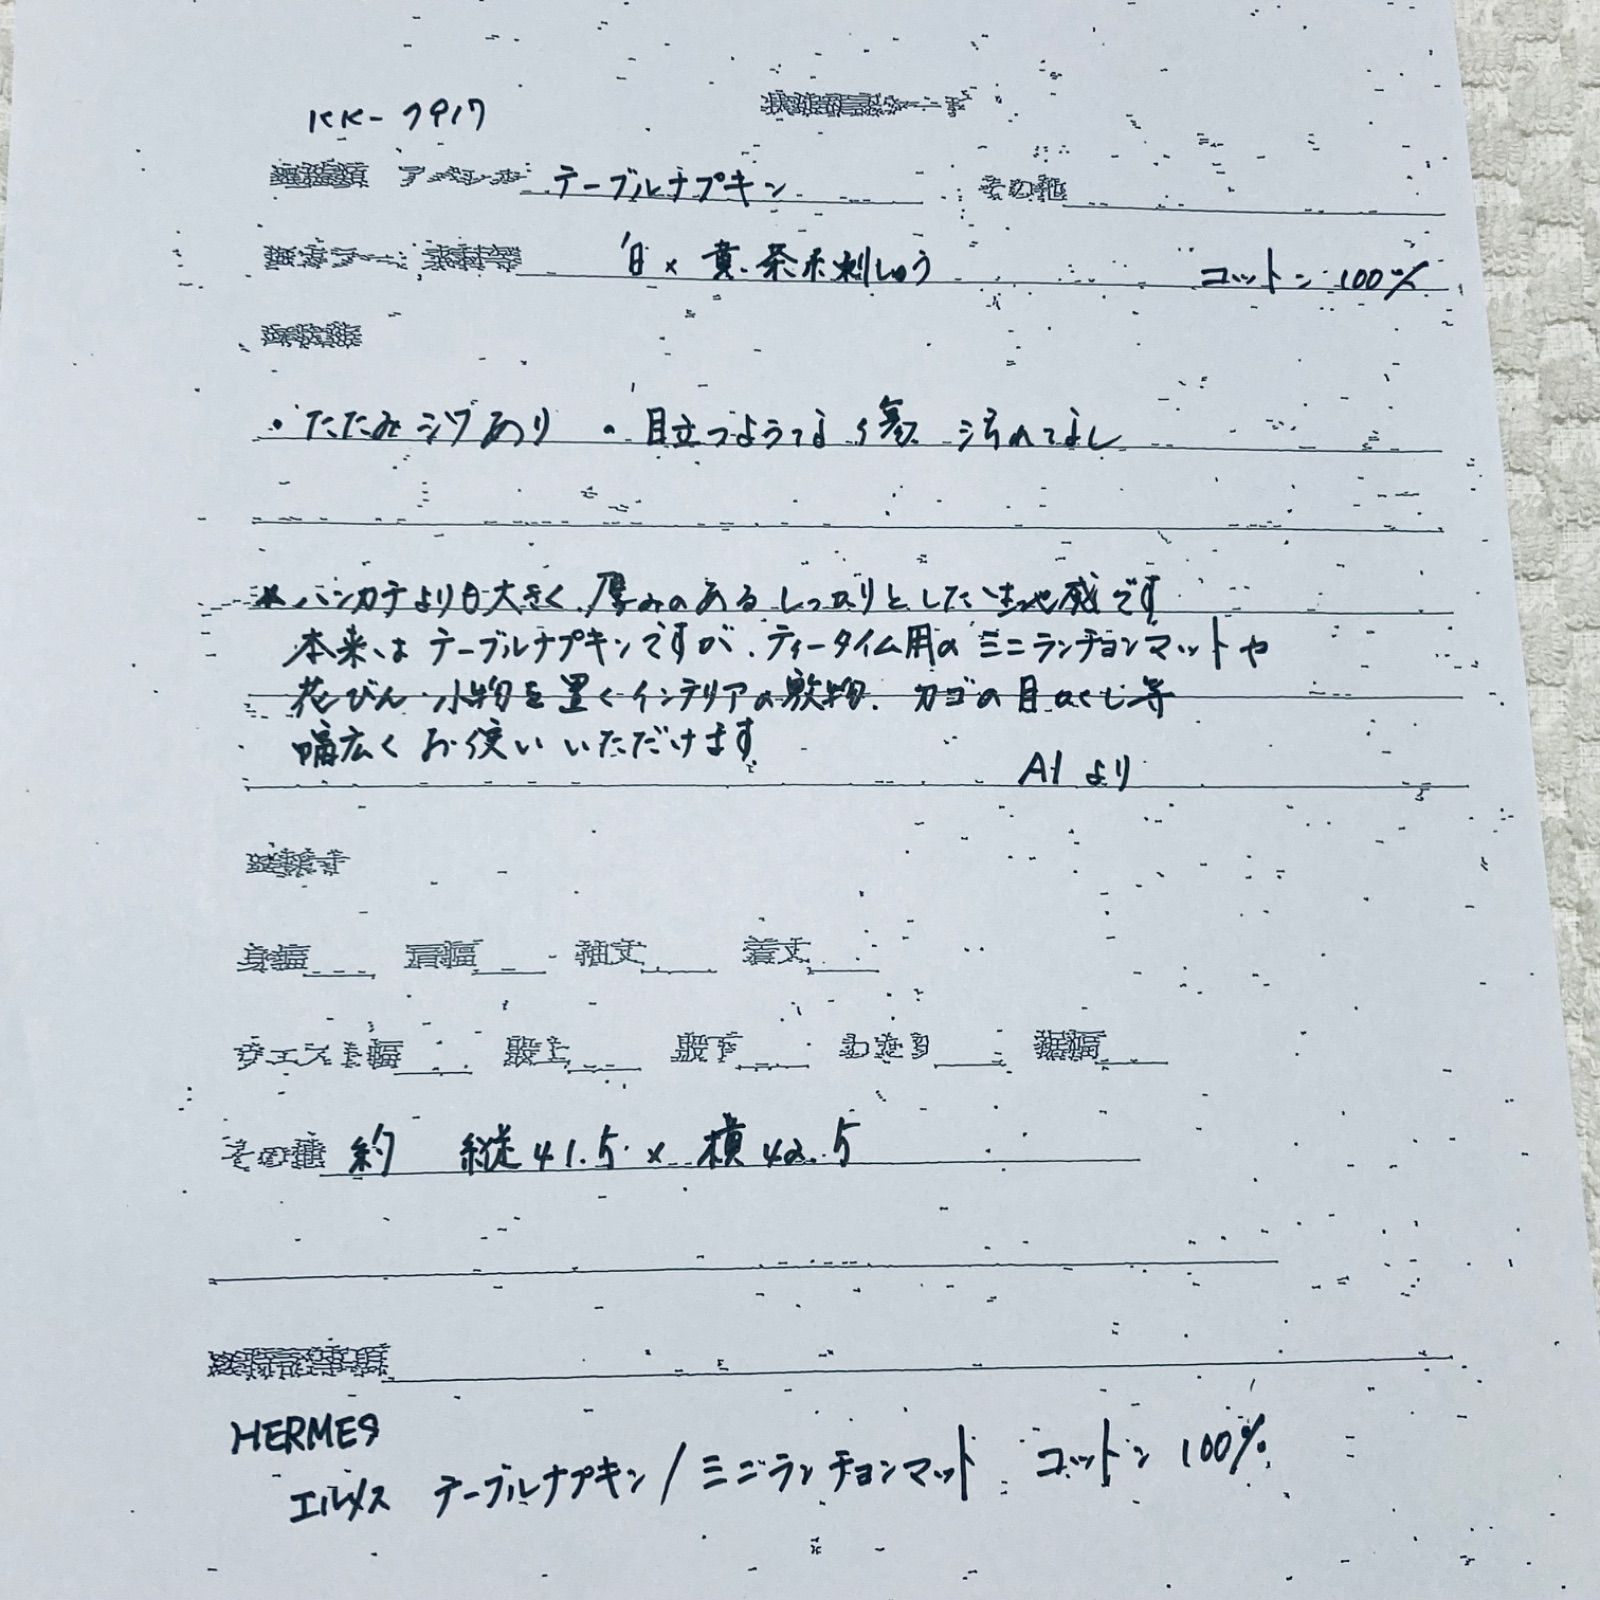 KK-7917
アパレル テーブルナプキン その他
白×黄.茶糸刺しゅう コットン100%
・たたみジワあり ・目立つような傷 汚れなし
*ハンカチより大きく、厚みのあるしっかりとした生地感です
本来はテーブルナプキンですが、ティータイム用のミニランチョンマットや
花びん・小物を置くインテリアの敷物、カゴの目かくし等
幅広くお使いいただけます
AIより
身幅 肩幅 袖丈 着丈
ウエスト幅 股上 股下 わたり 裾幅
その他 約 縦41.5×横42.5
HERMES
エルメス テーブルナプキン/ミニランチョンマット コットン100%